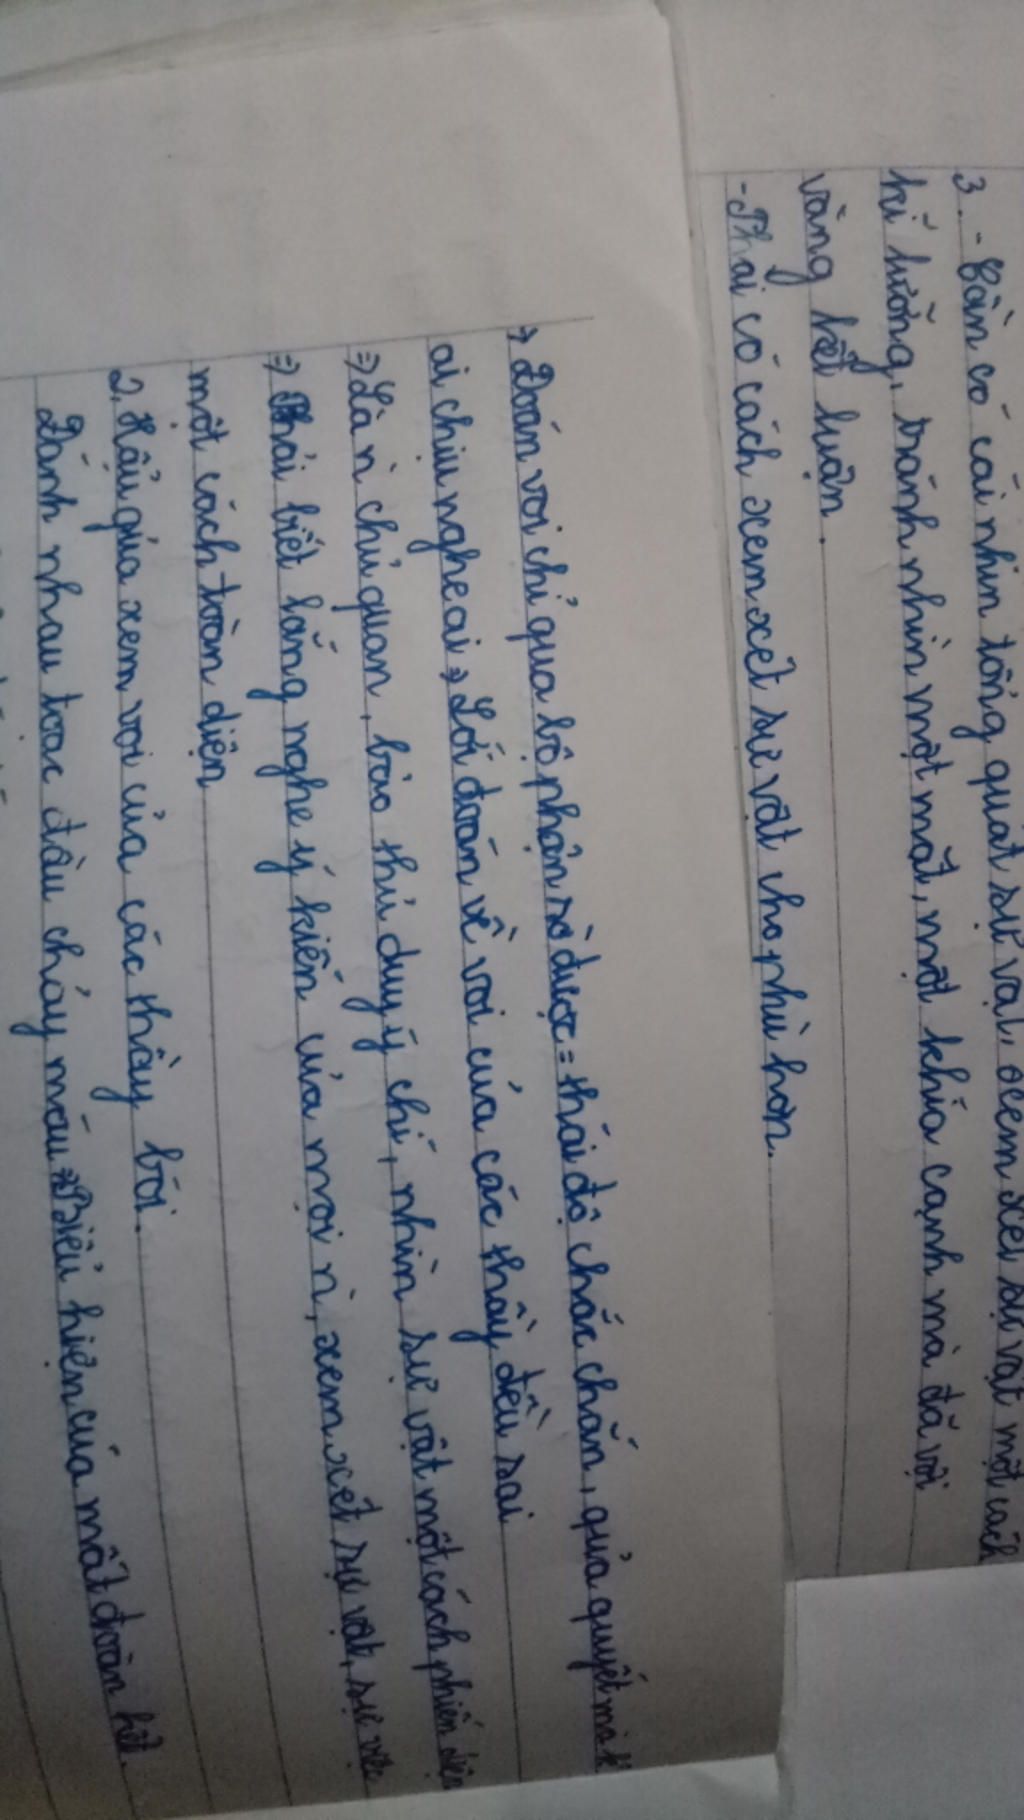 3. - Cần có cái nhìn tổng quát sự vật, xem xét sự vật một cách
kĩ lưỡng, tránh nhìn một mặt, một khía cạnh mà đã vội
vàng kết luận.
- Phải có cách xem xét sự vật cho phù hơn.
→ Đoán voi chỉ qua bộ phận sờ được = thái độ chắc chắn, quả quyết mà k
ai chịu nghe ai → Lối đoán về voi của các thầy đều sai
⇒ Là n' chủ quan, bảo thủ, duy ý chí, nhìn sự vật một cách phiến diện
⇒ Phải biết lắng nghe ý kiến của mọi n', xem xét sự vật, sự việc
một cách toàn diện
2. Hậu quả xem voi của các thầy bói.
Đánh nhau toac đầu chảy máu ⇒ Biểu hiện của mất đoàn kết.